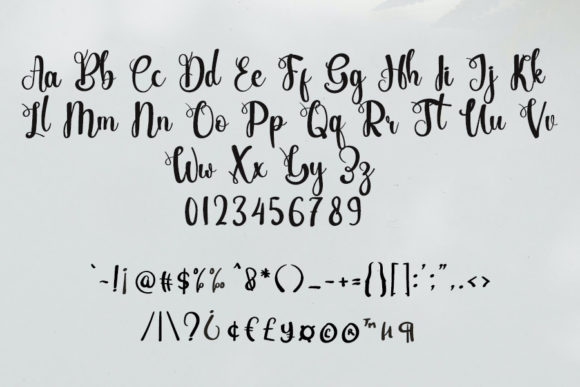 Aa Bb Cc Dd Ee Ff Gg Hh Ii Jj Kk
Ll Mm Nn Oo Pp Qq Rr Tt Uu Vv
Ww Xx Yy Zz
0123456789
`~!¡@#$%‰^&*()_-+={}[]:';",.<>
/|\?¿¢€£¥¤©®™µ¶